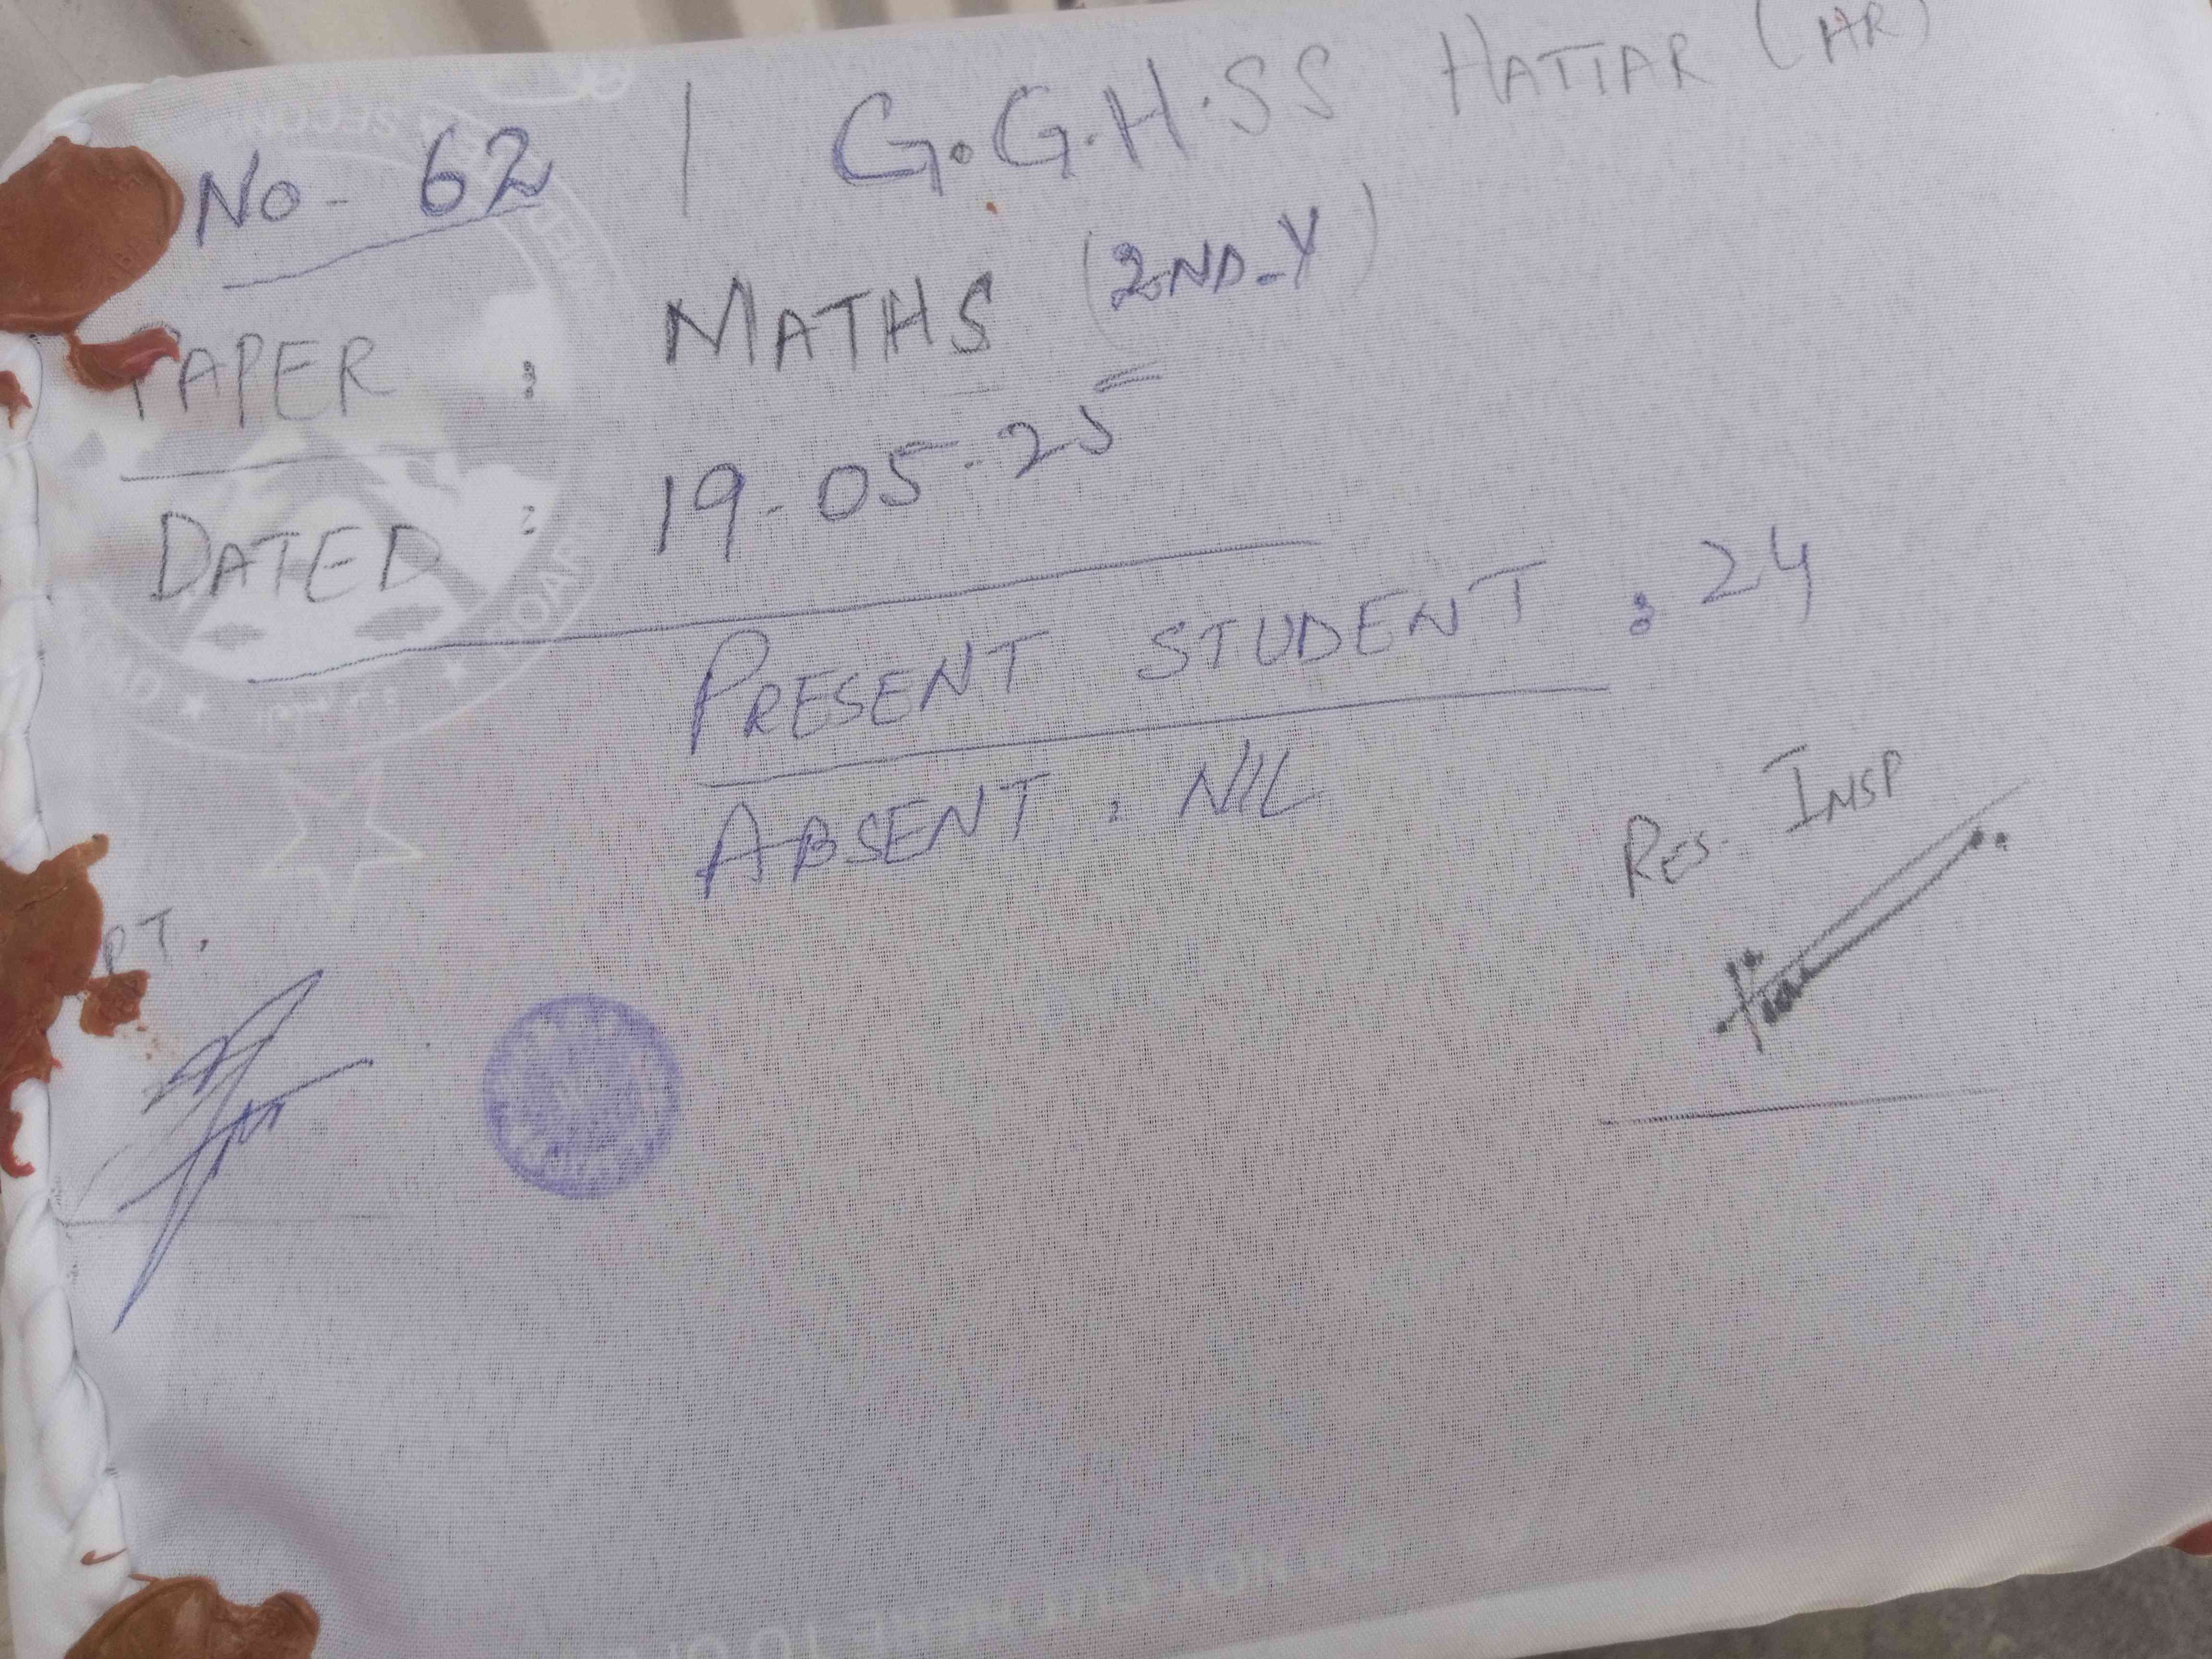 No - 62 | G.G.H.SS HATTAR (HR)
PAPER : MATHS (2ND-Y)
DATED : 19-05-25
PRESENT STUDENT : 24
ABSENT : NIL
RES. INSP